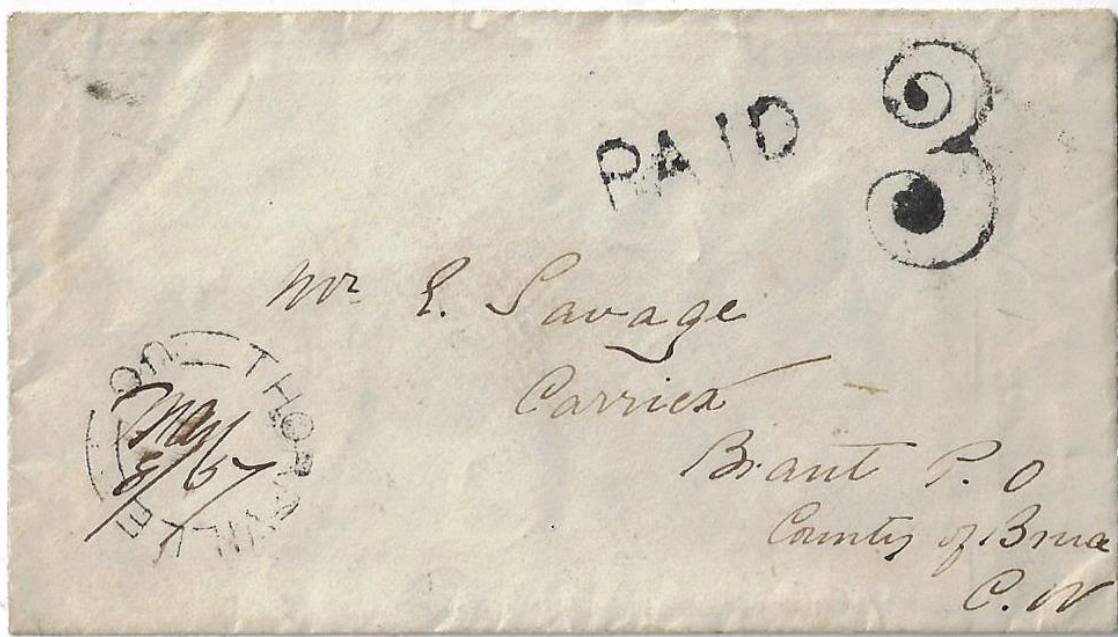 PAID 3
Mr E. Savage
Carrick
Brant P. O
County of Bruce
C. W
THORNVILLE
May
8/57